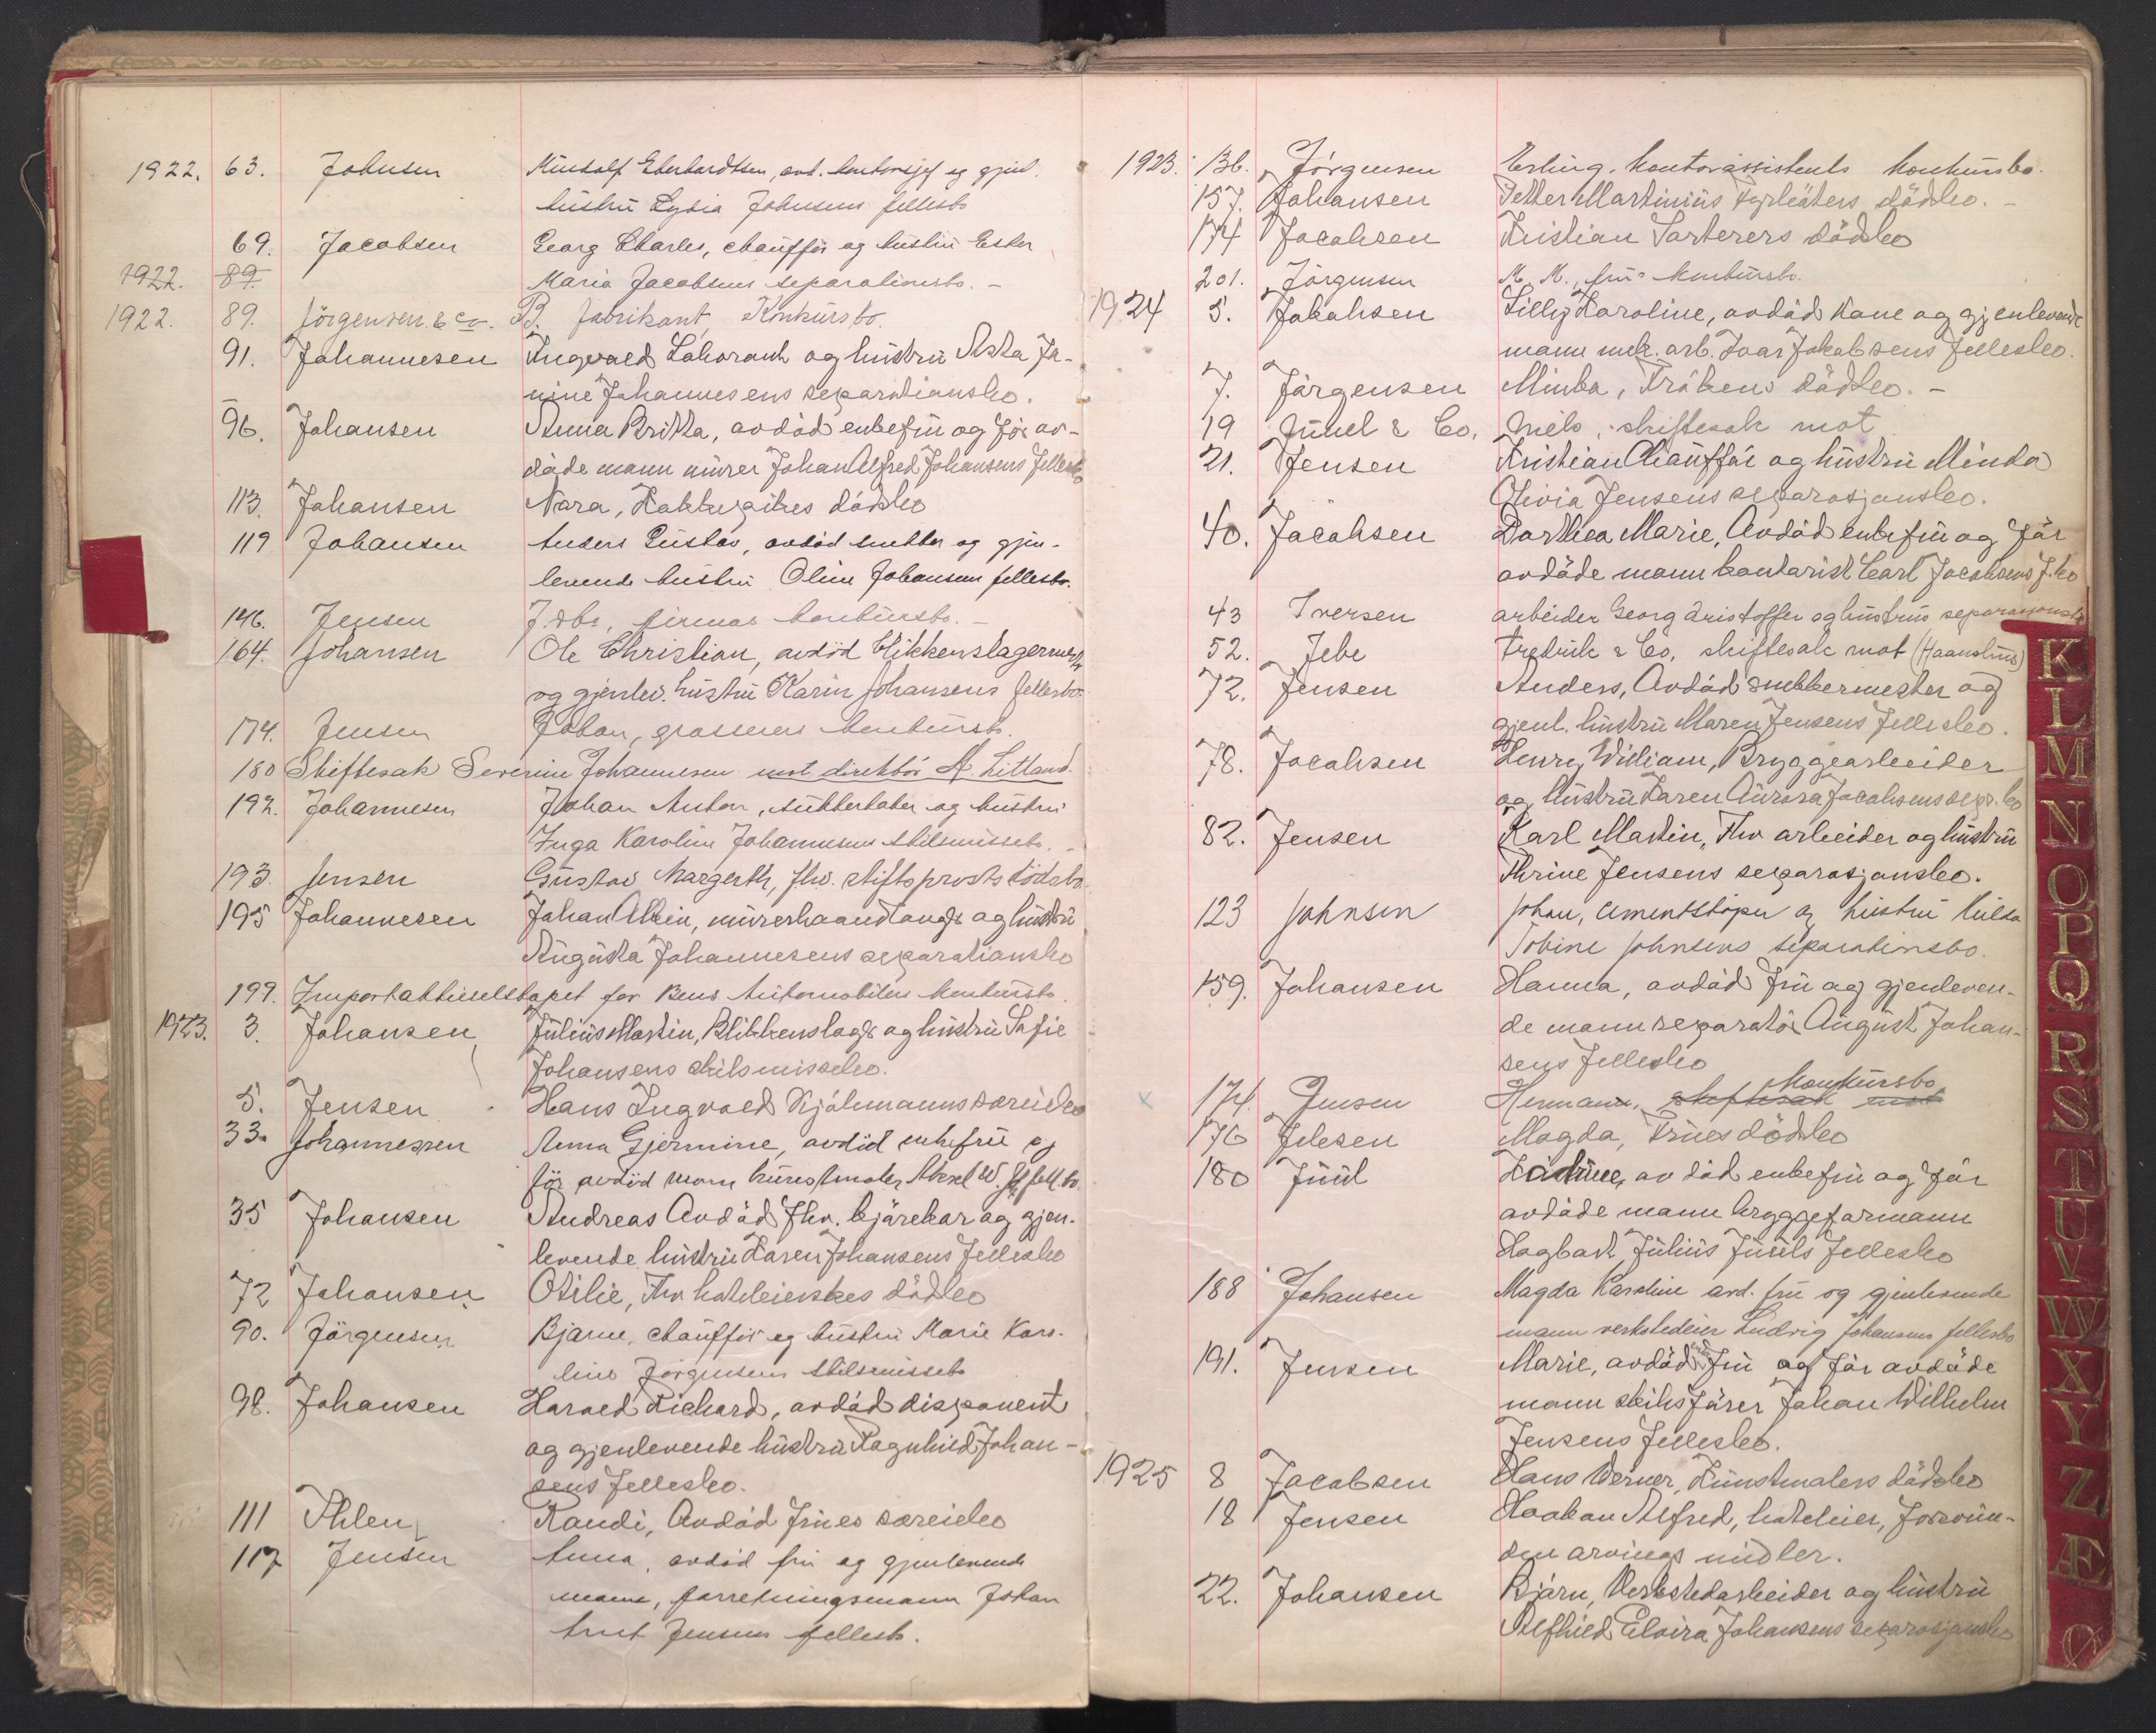 1922. 63. Johnsen Eberhardtsen, avd. kontorsjef og gjenl.
hustru Lydia Johnsens fellesbo
69. Jacobsen Georg Charles, chauffør og hustru Ester
1922. 89. Maria Jacobsens separationsbo. -
1922. 89. Jörgensen & Co. B. fabrikant, Konkursbo.
91. Johannesen Ingvald og hustru Asta Ja-
nine Johannesens separationsbo.
96. Johansen Anna Britta, avdöd enkefru og för av-
døde mann murer Johan Alfred Johansens fellesbo
113. Johansen Nora, dödsbo
119 Johansen Anders Gustav, avdöd snekker og gjen-
levende hustru Oline Johansens fellesbo.
146. Jensen J. firmas konkursbo. -
164. Johansen Ole Christian, avdöd blikkenslagermester
og gjenlev. hustru Karin Johansens fellesbo.
174. Jensen Johan, grosserers konkursbo.
180 Skiftesak Severine Johannesen mot direktör A. Litland.
192. Johannesen Johan Anton, sukkerkoker og hustru
Inga Karoline Johannesens skilsmissebo. -
193. Jensen Gustav Margerth, fhv. stiftsprosts dödsbo.
195 Johannesen Johan Albin, murerhaandlanger og hustru
Augusta Johannesens separationsbo
199. Importaktieselskapet for Bens Automobilers konkursbo.
1923. 3. Johansen, Julius Martin, Blikkenslager og hustru Sofie
Johansens skilsmissebo.
5. Jensen Hans Ingvald Kjölmanns særeiebo
33. Johannessen Anna Gjermine, avdöd enkefru og
för avdöd mann kunstmaler Aksel W. Js fell. bo.
35 Johansen Andreas Avdöd fhv. kjørekar og gjen-
levende hustru Karen Johansens fellesbo
72 Johansen Otilie, Fhv hoteleierskes dödsbo
90. Jörgensen Bjarne, chaufför og hustru Marie Karo-
line Jörgensens skilsmissebo
98. Johansen Harald Richard, avdöd disponent
og gjenlevende hustru Ragnhild Johan-
sens fellesbo.
111 Ihlen Randi, Avdöd frues særeiebo
117 Jensen Anna, avdöd fru og gjenlevende
mann, forretningsmann Johan
Arnt Jensens fellesbo.
1923. 136. Jörgensen Erling, kontorassistents konkursbo.
157. Johansen Petter Martinius Fyrbøters dödsbo. -
174 Jacobsen Kristian Sorterers dödsbo
201. Jörgensen M. M., fru - konkursbo.
1924 5. Jakobsen Lilly Karoline, avdöd Kone og gjenlevende
mann mek. arb. Ivar Jakobsens fellesbo.
7. Jörgensen Minka, Frökens dödsbo. -
19 Juuel & Co, Niels, skiftesak mot
21. Jensen Kristian Chauffør og hustru Minda
Olivia Jensens separasjonsbo.
40. Jacobsen Dorthea Marie, Avdöd enkefru og för
avdöde mann kontorist Carl Jacobsens f.bo
43 Iversen arbeider Georg Kristoffer og hustrus separasjonsbo
52. Jebe Fredrik & Co, skiftesak mot (Haanshus)
72. Jensen Anders, Avdöd snekkermester og
gjenl. hustru Maren Jensens fellesbo.
78. Jacobsen Henry William, Bryggearbeider
og hustru Karen Aurora Jacobsens sep. bo
82. Jensen Karl Martin, Fhv arbeider og hustru
Thrine Jensens separasjonsbo.
123 Johnsen Johan, cementstöper og hustru Hulda
Tobine Johnsens separationsbo.
159. Johansen Hanna, avdöd fru og gjenleven-
de mann reparatör August Johan-
sens fellesbo
174. Jensen Hermann, skiftesak mot konkursbo
176 Jelesen Magda, Frues dödsbo
180 Juul Kadrine, avdöd enkefru og för
avdöde mann bryggeformann
Hagbart Julius Juuls fellesbo
188 Johansen Magda Karoline avd. fru og gjenlevende
mann verkstedeier Ludvig Johansens fellesbo
191. Jensen Marie, avdöd enkefru og för avdöde
mann skibsförer Johan Wilhelm
Jensens fellesbo.
1925 8 Jacobsen Hans Werner, Kunstmalers dödsbo
18 Jensen Haakon Alfred, hoteleier, forsvun-
den arvings midler.
22. Johansen Bjarn, Verkstedarbeider og hustru
Alfhild Elvira Johansens separasjonsbo
K
L
M
N
O
P
Q
R
S
T
U
V
W
X
Y
Z
Æ
Ø